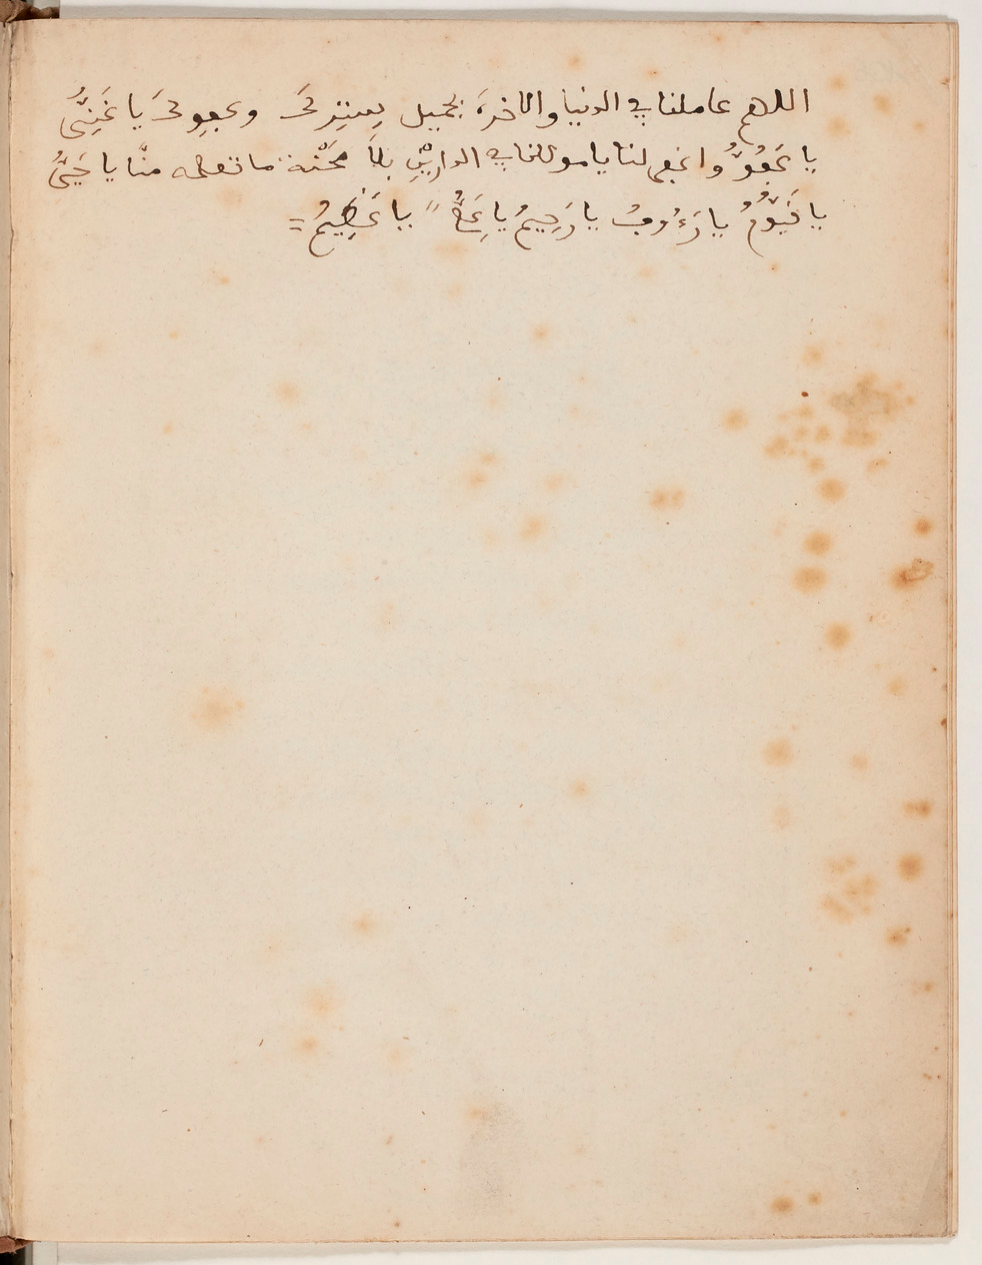 اللهم عاملنا في الدنيا والاخرة بجميل سترك وعفوك يا غَنِيُّ
يا عَفُوُّ واغفر لنا يا مولانا في الدارين بلا محنة ما تعلمه منّا يا حَيُّ
يا قَيُّومُ يا رَءُوفُ يا رَحِيمُ يا عَظِيمُ